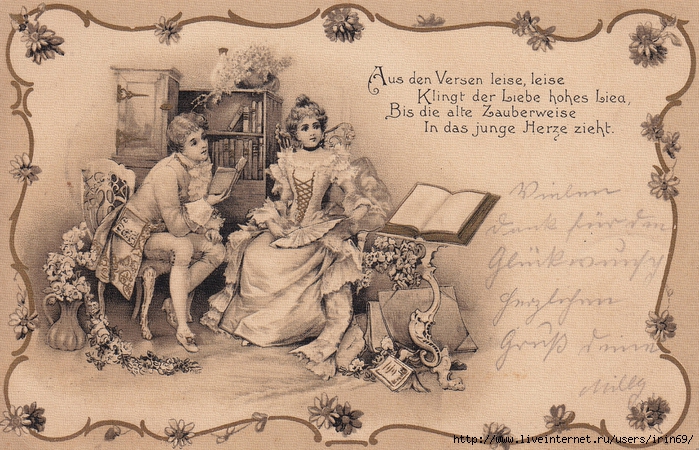 Aus den Versen leise, leise
Klingt der Liebe hohes Lied,
Bis die alte Zauberweise
In das junge Herze zieht.
Vielen
dank für den
Glückwunsch
Herzlichen
Gruß deine
Milly
http://www.liveinternet.ru/users/irin69/